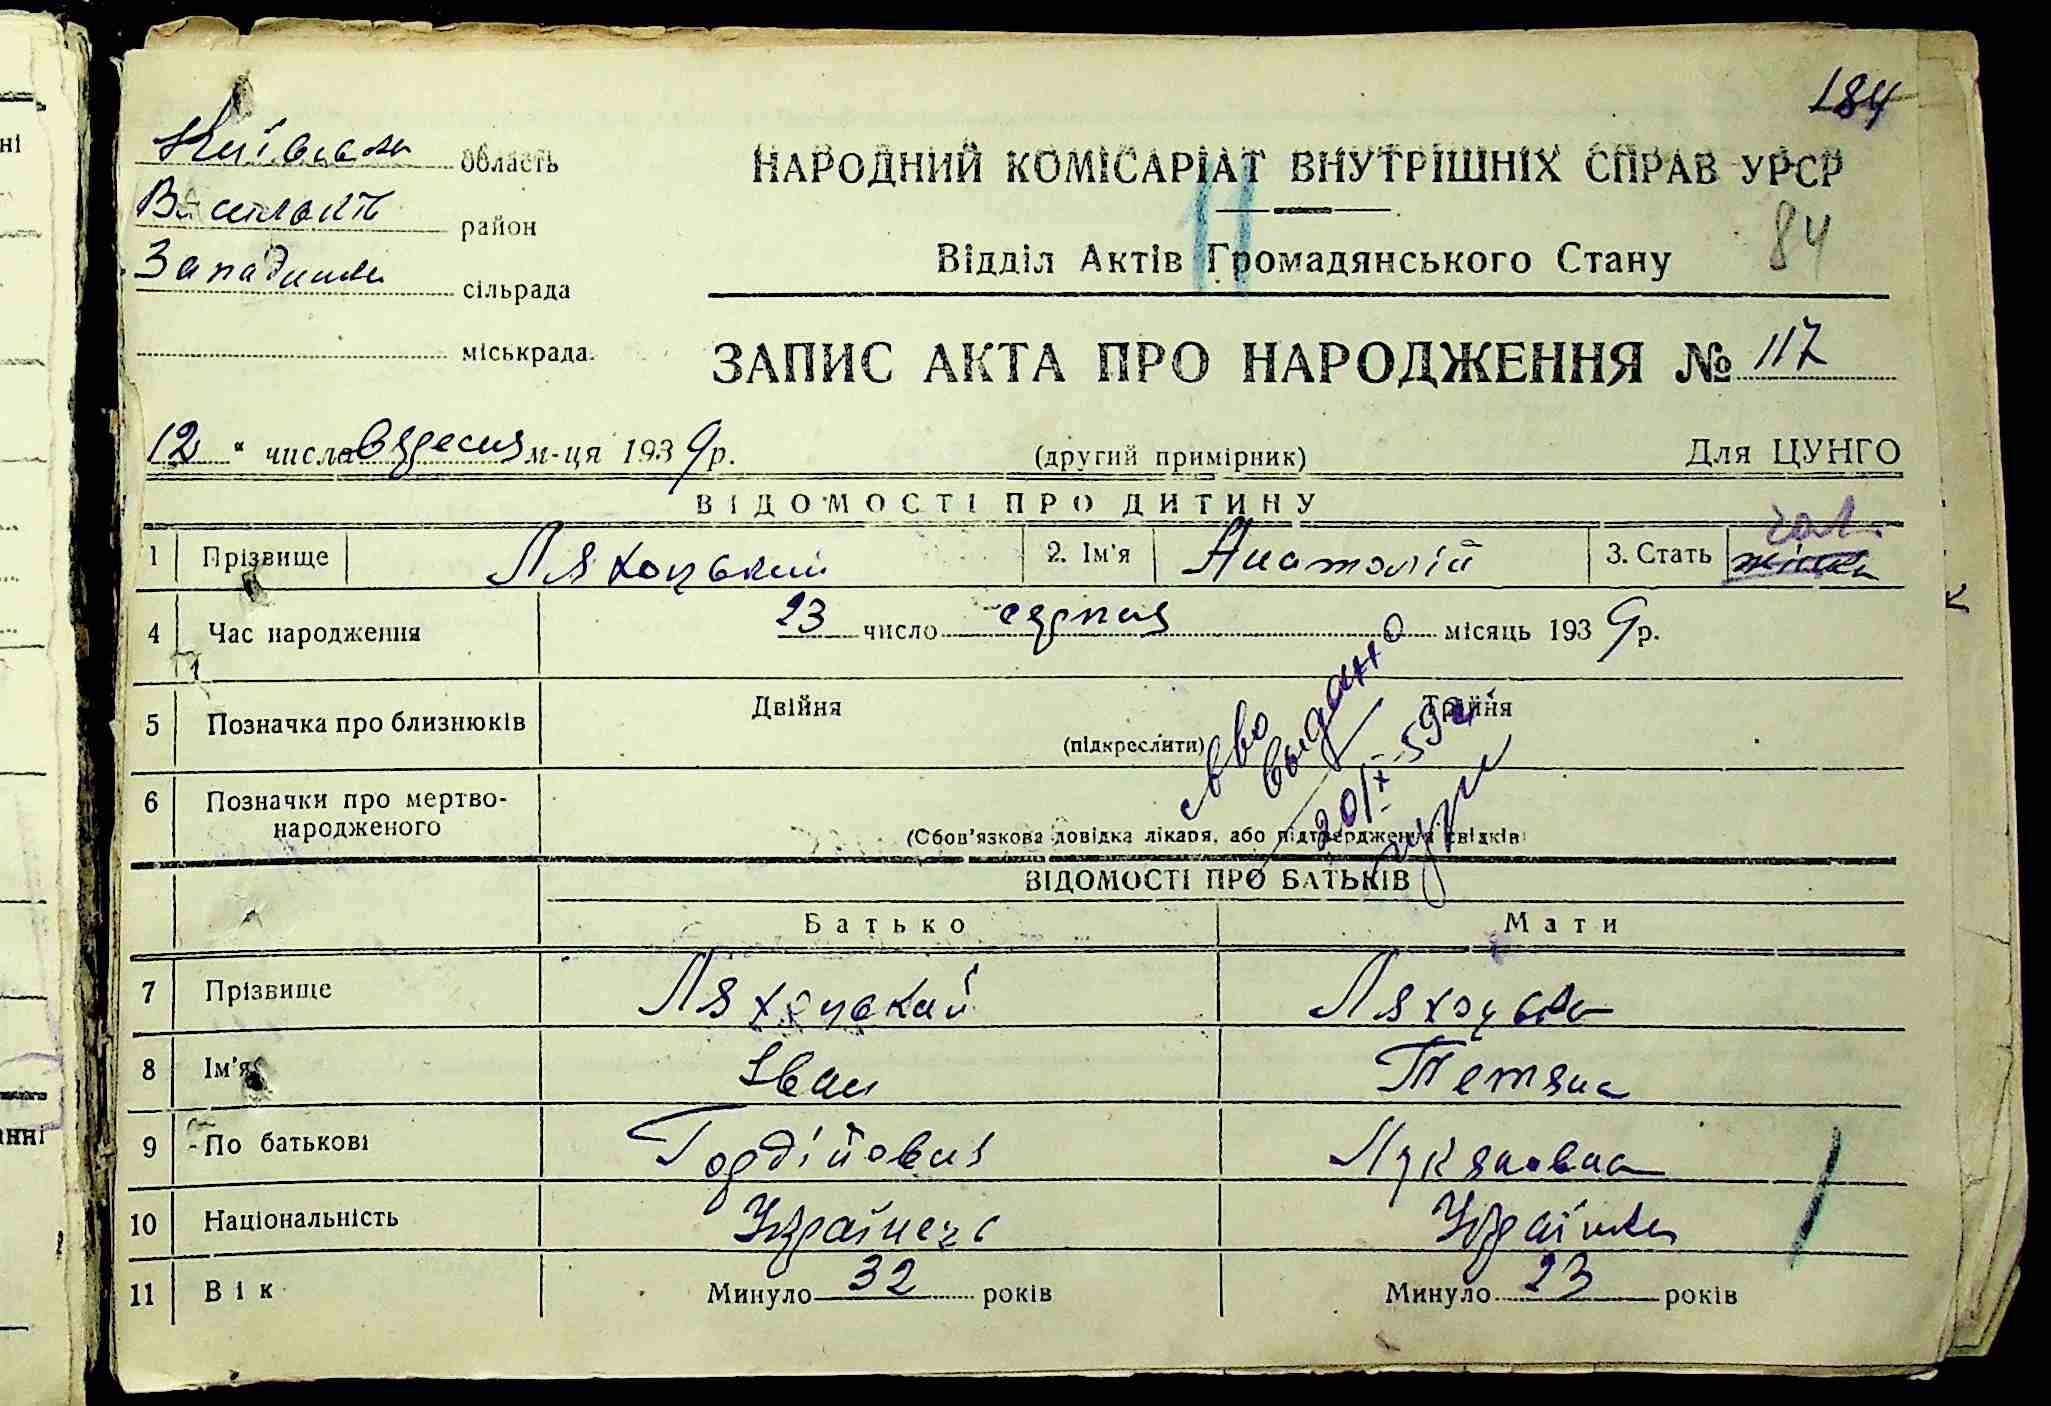 184
Київська область
Васильків район
Западинка сільрада
міськрада.
НАРОДНИЙ КОМІСАРІАТ ВНУТРІШНІХ СПРАВ УРСР
84
Відділ Актів Громадянського Стану
ЗАПИС АКТА ПРО НАРОДЖЕННЯ № 117
12 " числа вересня м-ця 1939р.
(другий примірник)
Для ЦУНГО
ВІДОМОСТІ ПРО ДИТИНУ
1 Прізвище Ляхоцький 2. Ім'я Анатолій 3. Стать чол.
4 Час народження 23 число серпня місяць 1939р.
5 Позначка про близнюків Двійня Трійня
(підкреслити)
6 Позначки про мертво-
народженого
(Обов'язкова довідка лікаря, або підтвердження свідків
с-во
выдано
20/X-59г
ВІДОМОСТІ ПРО БАТЬКІВ
Батько Мати
7 Прізвище Ляхоцький Ляхоцька
8 Ім'я Іван Тетяна
9 По батькові Гордійович Лукяновна
10 Національність Українець Українка
11 Вік Минуло 32 років Минуло 23 років